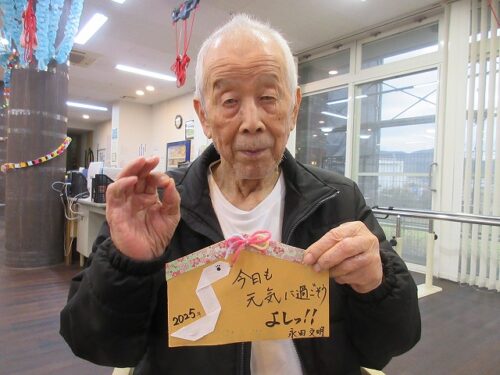 今日も
元気に過ごそう
よしっ!!
2025年
永田 文明